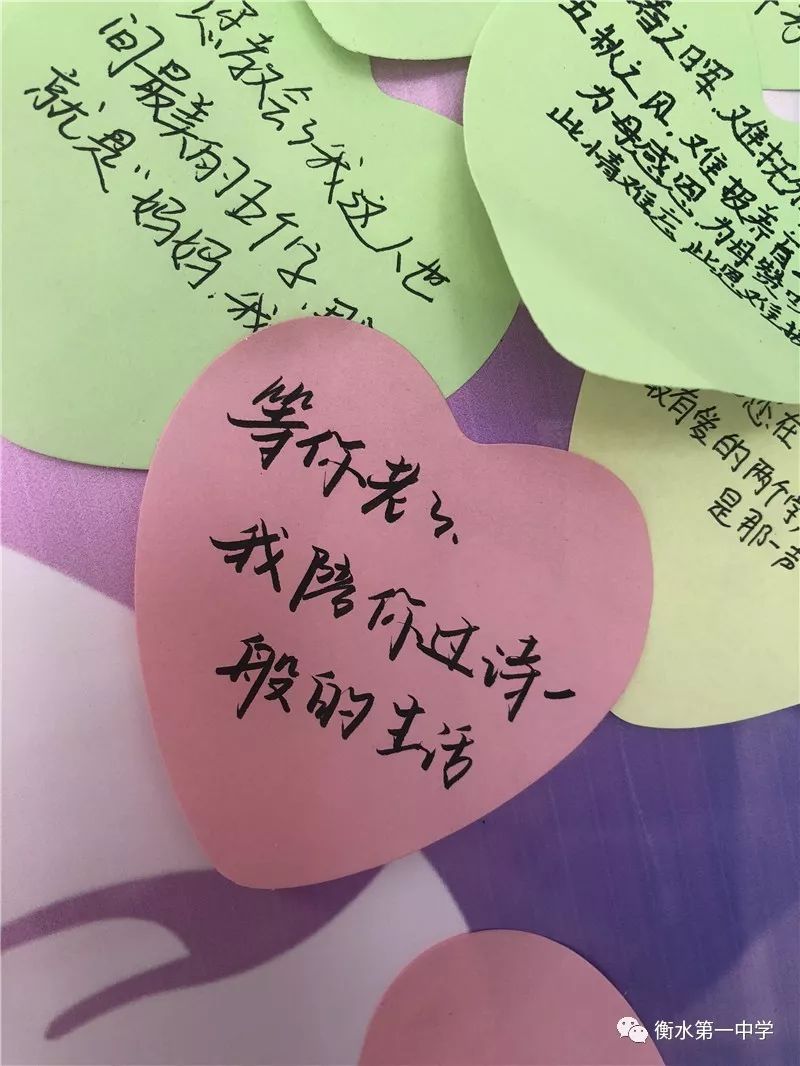 您教会了我这人世
间最美的五个字
就是“妈妈.我
春之日晖.难抚
五秋之风.难报养育
为母感恩.为母赞
此情难忘 此恩难
您在
最有爱的两个字
是那一声
等你老了、
我陪你过诗一
般的生活
衡水第一中学